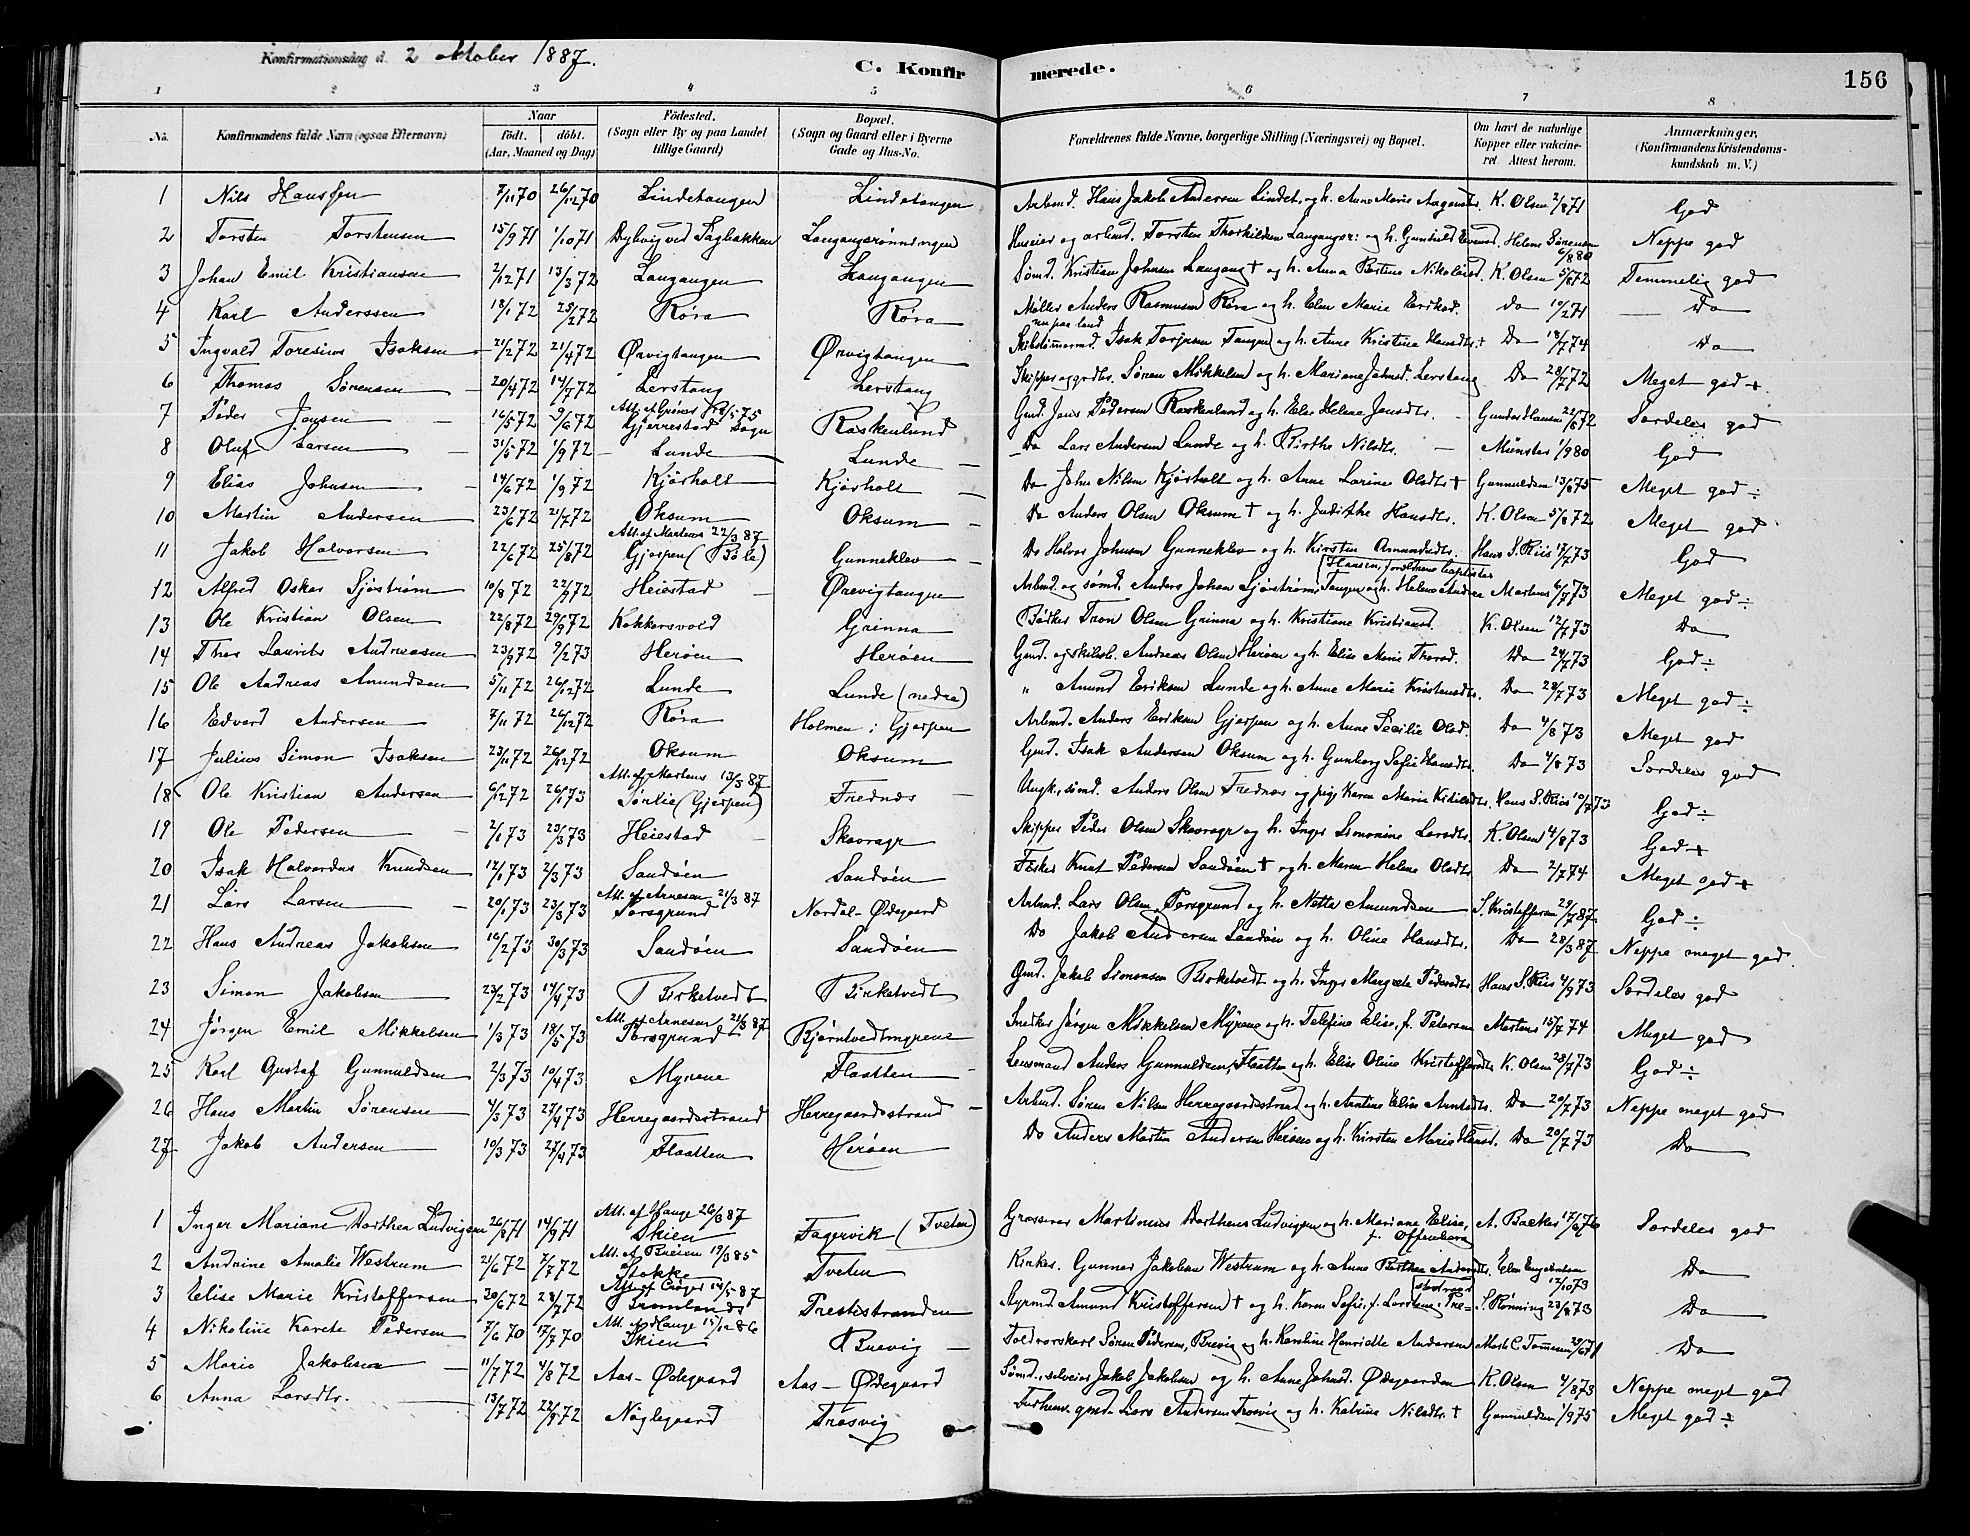 Konfirmationsdag d. 2 oktober 1887.
C. Konfirmerede.
156
1 2 3 4 5 6 7 8
No. Konfirmandens fulde Navn (ogsaa Efternavn) Naar födt. döbt. (Aar, Maaned og Dag) Födested. (Sogn eller By og paa Landet tillige Gaard) Bopæl. (Sogn og Gaard eller i Byerne Gade og Hus-No. Forældrenes fulde Navne, borgerlige Stilling (Næringsvei) og Bopæl. Om havt de naturlige Kopper eller vakcineret. Attest herom. Anmærkninger. (Konfirmandens Kristendomskundskab m. V.)
1 Nils Hanssen 7/11 70 26/12 70 Lindetangen Lindetangen Arbmd. Hans Jakob Andersen Lindet. og h. Anne Marie Aagesd. K. Olsen 2/8 71 God
2 Torsten Torstensen 15/9 71 1/10 71 Dybvig ved Sagbakken Langangsrønningen Huseier og arbmd. Torsten Thorkildsen Langangsr: og h. Gunhild Evensd. Helene Sørensen 6/8 80 Neppe god
3 Johan Emil Kristiansen 2/12 71 13/3 72 Langangen Langangen Sømd. Kristian Johnsen Langang + og h. Anna Bertine Nikolaisd. K. Olsen 5/6 72 Temmelig god
4 Karl Anderssen 18/1 72 25/2 72 Røra Røra Møller Anders Rasmussen Røra og h. Elen Marie Eriksd. Do 10/2 71 Do
5 Ingvald Toresius Isaksen 21/2 72 21/4 72 Ørvigtangen Ørvigtangen Skibstømrmd. nu paa land Isak Torjusen Tangen og h. Anne Kristine Hansdtr. + Do 18/7 74 Do
6 Thomas Sørensen 20/4 72 14/7 72 Lerstang Lerstang Skipper og grdbr. Søren Mikkelsen og h. Mariane Johnsd. Lerstang Do 28/7 72 Meget god +
7 Peder Jensen 16/5 72 9/6 72 Att. af Grøner 18/5 75 Gjerrestad Sogn Raskenlund Gmd. Jens Pedersen Raskenlund og h. Elen Helene Jensdtr. Gunder Hansen 22/6 72 Særdeles god
8 Oluf Larsen 31/5 72 1/9 72 Lunde Lunde Do Lars Andersen Lunde og h. Birthe Nilsdtr. Münster 1/9 80 God
9 Elias Johnsen 14/6 72 1/9 72 Kjørholt Kjørholt Do John Nilsen Kjørholt og h. Anne Larine Olsdtr + Gunnuldsen 13/6 75 Meget god ÷
10 Martin Andersen 23/6 72 21/7 72 Oksum Oksum Do Anders Olsen Oksum + og h. Judithe Hansdtr. K. Olsen 5/8 72 Meget god
11 Jakob Halvorsen 22/6 72 25/8 72 Att. af Martens 22/3 87 Gjerpen (Bøle) Gunneklev Do Halvor Johnsen Gunneklev og h. Kirsten Amundsdtr. Hans S. Riis 17/7 73 God
12 Alfred Oskar Sjøstrøm 10/8 72 22/ 72 Heiestad Ørevigtangen Arbmd. og sømd. Anders Johan Sjøstrøm, Tangen og h. Helene Andrea Hansen, forældrene baptister Martens 6/7 73 Meget god ÷
13 Ole Kristian Olsen 22/8 72 29/9 72 Kokkersvold Grinna Bødker Tron Olsen Grinna og h. Kristiane Kristiansd. K. Olsen 12/7 73 Do
14 Thor Laurits Andreasen 23/9 72 9/2 73 Herøen Herøen Gmd. og skibsb. Andreas Olsen Herøen og h. Elise Marie Thorsd. Do 24/7 73 God ÷
15 Ole Andreas Amundsen 5/11 72 26/12 72 Lunde Lunde (nedre) " Amund Eriksen Lunde og h. Anne Marie Kristensdtr. Do 28/7 73 Meget god ÷
16 Edvard Andersen 7/11 72 26/12 72 Røra Holmen i Gjerpen Arbmd. Anders Eriksen Gjerpen og h. Anne Cecilie Olsd. Do 4/8 73 Meget god
17 Julius Simon Isaksen 23/11 72 26/12 72 Oksum Oksum Gmd. Isak Andersen Oksum og h. Gunborg Sofie Hansdtr. Do 4/8 73 Særdeles god
18 Ole Kristian Andersen 6/12 72 26/1 73 Att. af Martens 13/3 87 Sørlie (Gjerpen) Frednæs Ungk., sømd. Anders Olsen Frednæs og pige Karen Marie Kittilsdtr. Hans S. Riis 10/7 73 God ÷
19 Ole Pedersen 2/1 73 23/3 73 Heiestad Skavrager Skipper Peder Olsen Skavrager og h. Inger Simonine Larsdtr. K. Olsen 4/8 73 God +
20 Isak Halvordus Knudsen 12/1 73 2/3 73 Sandøen Sandøen Fisker Knut Pedersen Sandøen + og h. Maren Helene Olsdtr Do 2/7 74 Meget god +
21 Lars Larsen 20/1 73 23/3 73 Att. af Arnesen 21/3 87 Porsgrund Nordal-Ødegaard Arbmd. Lars Olsen Porsgrund og h. Netta Amundsen S. Kristoffersen 29/7 87 God ÷
22 Hans Andreas Jakobsen 16/2 73 30/3 73 Sandøen Sandøen Do Jakob Andersen Sandøen og h. Oline Hansdtr. Do 28/3 87 Neppe meget god.
23 Simon Jakobsen 23/2 73 14/4 73 Birketvedt Birketvedt Gmd. Jakob Simonsen Birketvedt og h. Inger Margrete Pedersdtr Hans S. Riis 4/9 73 Særdeles god
24 Jørgen Emil Mikkelsen 1/3 73 18/5 73 Att. af Arnesen 21/3 87 Porsgrund Bjørntvedtmyrene Snedker Jørgen Mikkelsen Myrene og h. Telefine Elise, f. Petersen Martens 15/7 74 Meget god
25 Karl Gustaf Gunnuldsen 2/3 73 10/4 73 Myrene Flaatten Lensmand Anders Gunnuldsen, Flaatten og h. Elise Oline Kristoffersdtr K. Olsen 28/7 73 God ÷
26 Hans Martin Sørensen 4/3 73 27/4 73 Herregaardsstrand Herregaardsstrand Arbmd. Søren Nilsen Herregaardsstrand og h. Anetine Elise Arntsdtr. Do 20/7 73 Neppe meget god
27 Jakob Andersen 10/3 73 27/4 73 Flaatten Herøen Do Anders Martin Andersen Herøen og h. Kirsten Marie Hansd. Do 20/7 73 Do
1 Inger Mariane Dorthea Ludvigsen 26/8 71 14/9 71 Att. af Hauge 26/3 87 Skien Fagervik (Tveten) Grosserer Martinius Dorthens Ludvigsen og h. Mariane Elise, f. Offenberg A. Backer 17/6 76 Særdeles god
2 Andrine Amalie Westrum 21/6 72 7/7 72 Att. af Breien 19/3 85 Stokke Tveten Kirkes. Gunnar Jakobsen Westrum og h. Anne Berthea Andersdtr. Elen Engebretsen 12/10 73 Do
3 Elise Marie Kristoffersen 20/6 72 28/7 72 Att. af Crøger 14/5 87 Bramlands Prestestranden Styrmd. Amund Kristoffersen + og h. Karen Sofie, f. Larsen, Prestestrand S. Rønning 23/8 73 Do
4 Nikoline Karete Pedersen 7/6 70 17/7 70 Att. af Hauge 15/12 86 Skien Brevig Toldrorskarl Søren Pedersen, Brevig og h. Karoline Henriette Andersen Mads C. Tommesen 29/6 71 Do
5 Marie Jakobsen 11/7 72 4/8 72 Aas-Ødegaard Aas-Ødegaard Sømd., selveier Jakob Jakobsen og h. Anne Johnsd. Ødegaarden K. Olsen 4/8 73 Neppe meget god
6 Anna Larsdtr. 13/7 72 22/9 72 Nøglegaard Trosvig Forhenv. gmd. Lars Andersen Trosvig og h. Katrine Nilsdtr. + Gunnuldsen 1/9 75 Meget god ÷